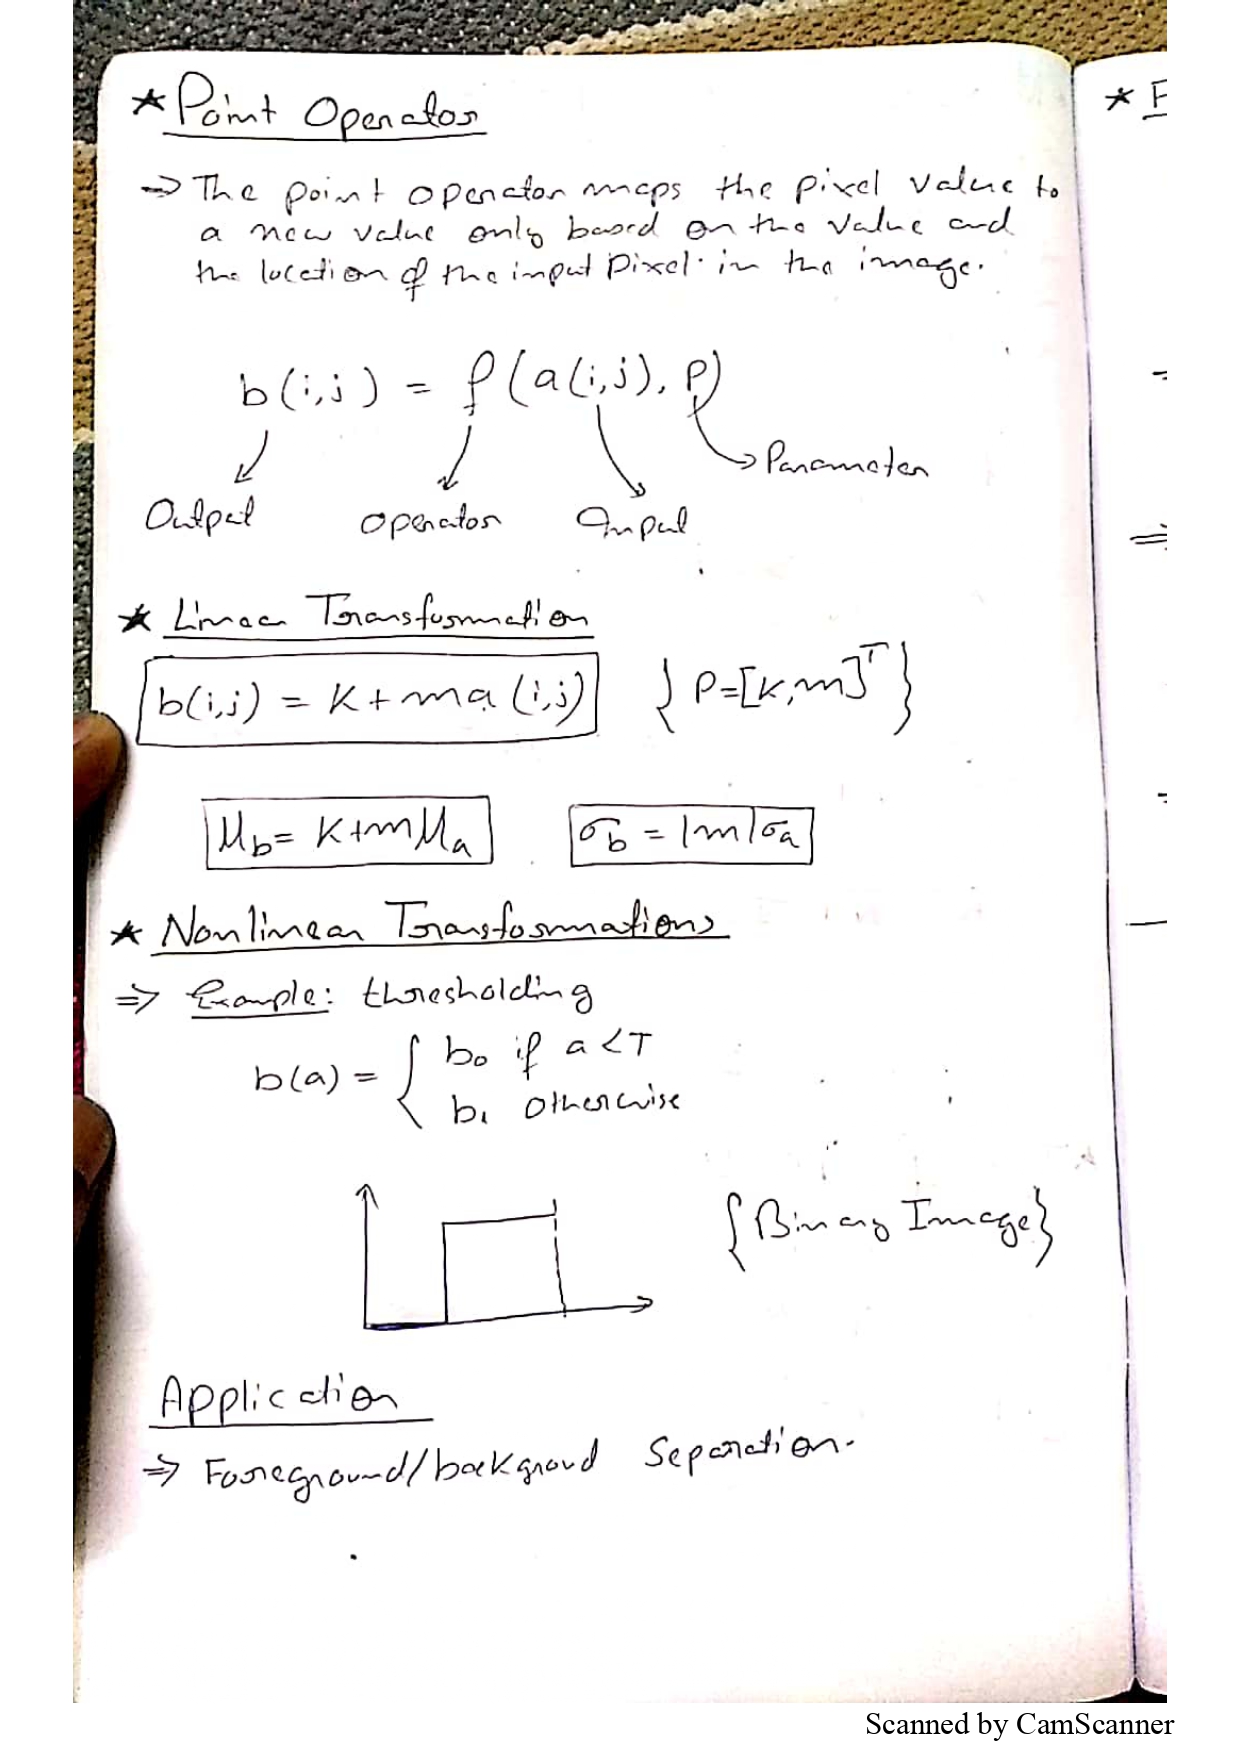 ★ Point Operator
⇒ The point operator maps the pixel value to
a new value only based on the value and
the location of the input Pixel in the image.
b(i,j) = f(a(i,j), P)
Parameter
Output Operator Input
★ Linear Transformation
b(i,j) = K + ma(i,j) { P=[K,m]ᵀ }
μb = K+mμa σb = |m|σa
★ Nonlinear Transformations
⇒ Example: thresholding
b(a) = { b₀ if a < T
b₁ otherwise
{Binary Image}
Application
⇒ Foreground/backgroud Separation.
★ F
Scanned by CamScanner